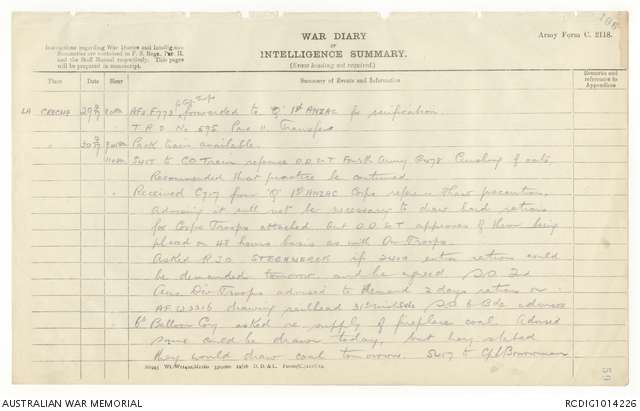 WAR DIARY
or
INTELLIGENCE SUMMARY.
(Erase heading not required.)
Army Form C. 2118.
Instructions regarding War Diaries and Intelligence
Summaries are contained in F. S. Regs., Part II.
and the Staff Manual respectively. Title pages
will be prepared in manuscript.
Place
Date
Hour
Summary of Events and Information
Remarks and
references to
Appendices
LA CRECHE AFs F773 forwarded to "Q" 1st ANZAC for verification.
T.R.O. No 695 Para 11 Transfers
Pack train available.
S417 to C.O. Train reference D.D.S.T. Fourth Army Crushing of oats.
Recommended that practice be continued.
Received C717 from "Q" 1st ANZAC Corps reference thaw precautions.
Advising it will not be necessary to draw hard rations
for Corps Troops attached but D.D.S.T. approves of them being
placed on 48 hours basis as with Div Troops.
Asked R.S.O. STEENWERCK if extra rations could
be demanded tomorrow and he agreed S.O. 2nd
Aus. Div. Troops advised to demand 2 days rations on
AF W3316 drawing railhead 31st S.O. 6 Bde advised
6th Balloon Coy asked re supply of fireplace coal. Advised
same could be drawn today, but they stated
they would draw coal tomorrow. S417 to
AUSTRALIAN WAR MEMORIAL
RCDIG1014226